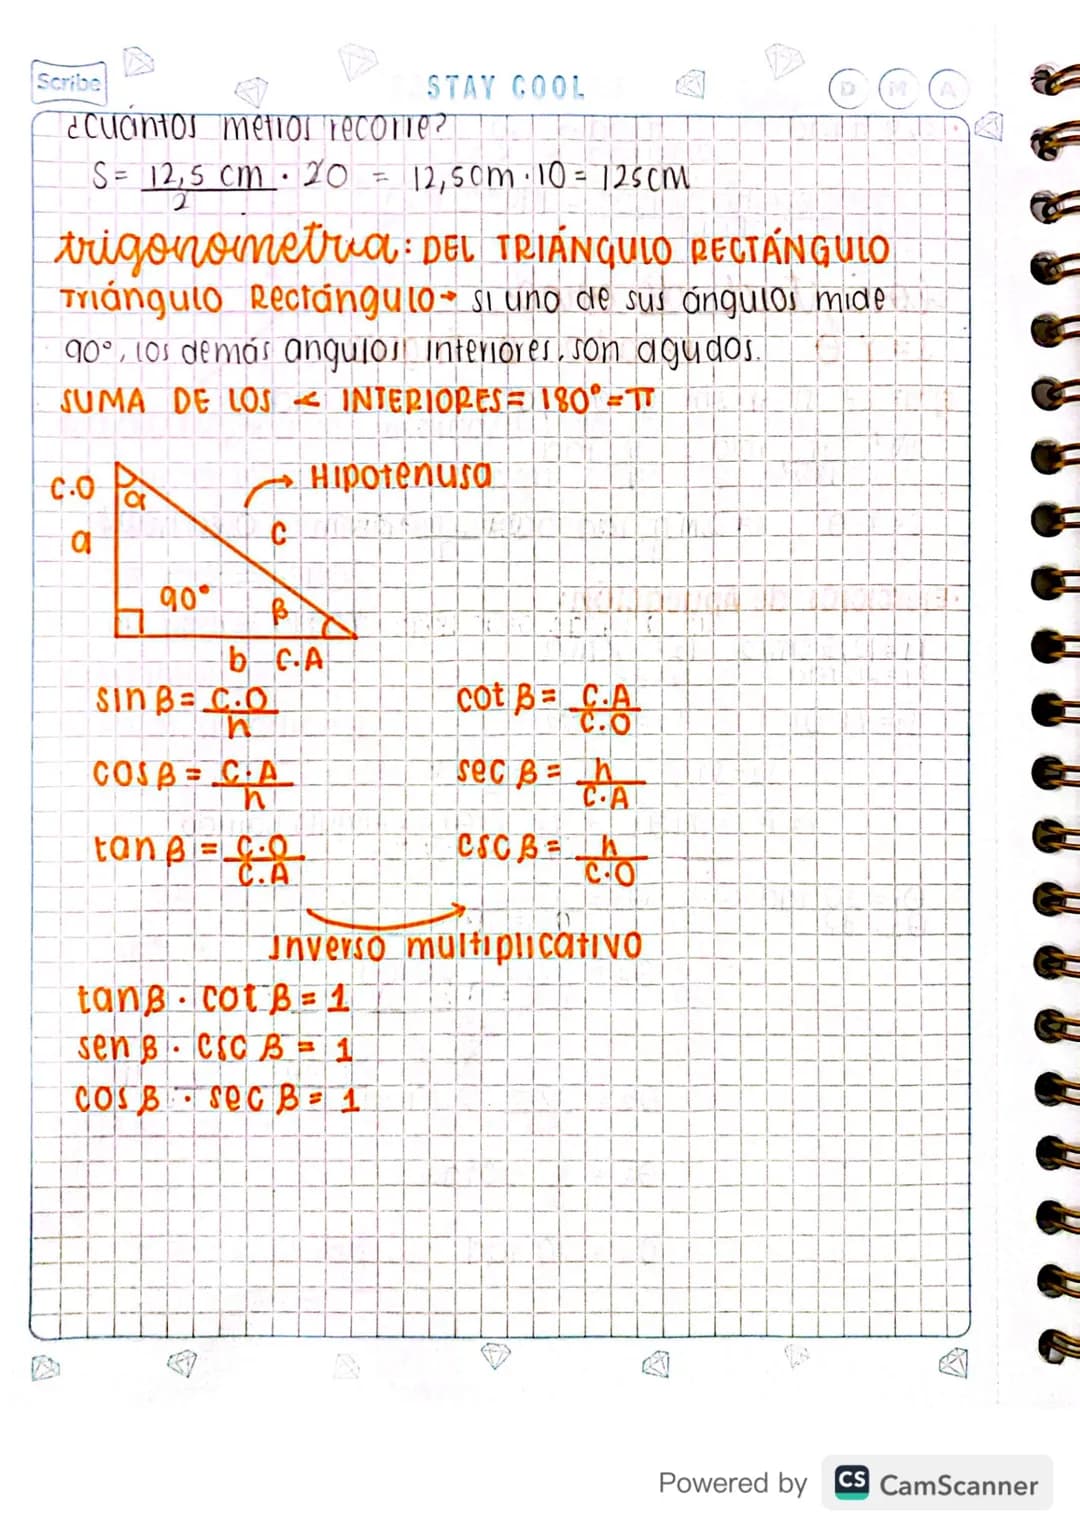 Scribe
STAY COOL
D M A
¿Cuántos metros recorre?
S= 12,5 cm / 2 · 20 = 12,5cm·10= 125cm
trigonometria: DEL TRIÁNGULO RECTÁNGULO
Triángulo Rectángulo→ si uno de sus ángulos mide
90°, los demás angulos interiores son agudos.
SUMA DE LOS < INTERIORES= 180°=π
C.O
α
→ Hipotenusa
a
c
90°
β
b C.A
sin β= C.O/h
cot β= C.A/C.O
cos β= C.A/h
sec β= h/C.A
tan β= C.O/C.A
csc β= h/C.O
Inverso multiplicativo
tanβ · cot β=1
sen β · csc β = 1
cos β · sec β= 1
Powered by CS CamScanner